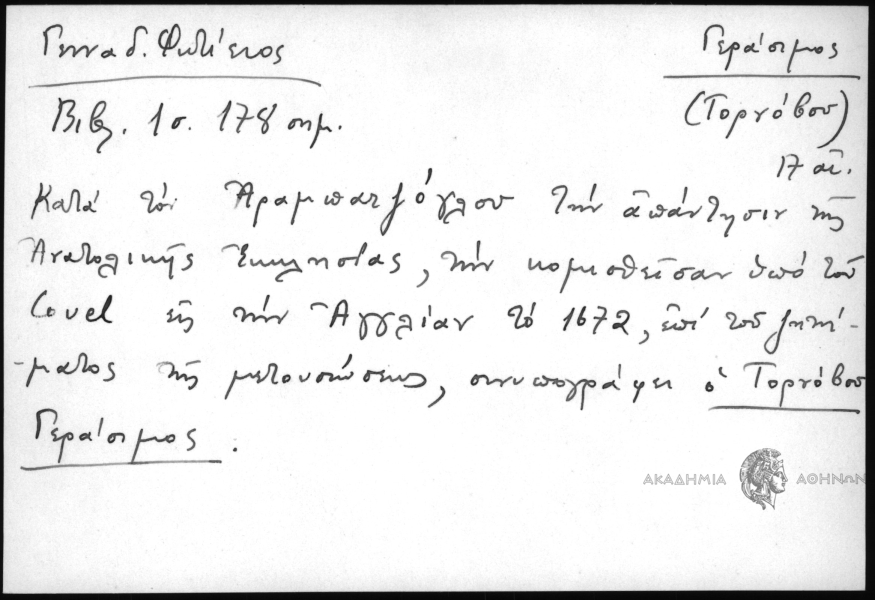 Γενναδ. Φωτίειος
Γεράσιμος
(Τορνόβου)
17 αἰ.
Βιβλ. 1 σ. 178 σημ.
Κατά τόν Ἀραμπατζόγλου τήν ἀπάντησιν τῆς
Ἀνατολικῆς Ἐκκλησίας, τήν κομισθεῖσαν ὑπό τοῦ
Covel εἰς τήν Ἀγγλίαν τό 1672, ἐπί τοῦ ζητή-
-ματος τῆς μετουσιώσεως, συνυπογράφει ὁ Τορνόβου
Γεράσιμος.
ΑΚΑΔΗΜΙΑ ΑΘΗΝΩΝ